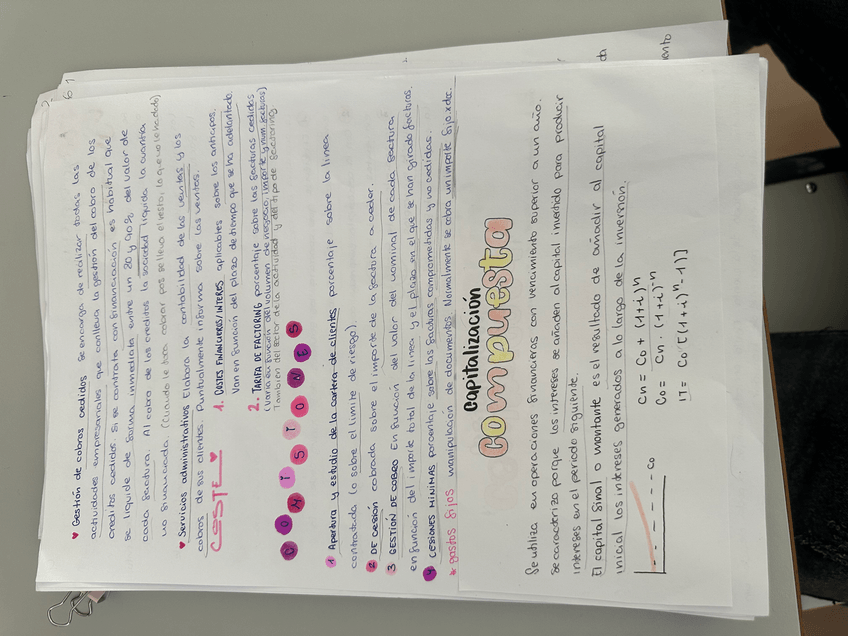 ♥ Gestión de cobros cedidos Se encarga de realizar todas las
actividades empresariales que conlleva la gestión del cobro de los
creditos cedidos. Si se contrata con financiación es habitual que
se liquide de forma inmediata entre un 20 y 90% del valor de
cada factura. Al cobro de los creditos la sociedad liquida la cuantia
no financiada. (Cuando le toca cobrar pos se lleva el resto, lo que no le ha dado)
♥ Servicios administrativos Elabora la contabilidad de las ventas y los
cobros de sus clientes. Puntualmente informa sobre las ventas.
COSTE ♥
1. COSTES FINANCIEROS/INTERES aplicables sobre los anticipos.
Van en función del plazo de tiempo que se ha adelantado.
2. TARIFA DE FACTORING porcentaje sobre las facturas cedidas
(Varia en función del volumen de negocio, importe y num. facturas)
Tambien del sector de la actividad y del tipo de factoring
COMISIONES
1 Apertura y estudio de la cartera de clientes porcentaje sobre la linea
contratada (o sobre el limite de riesgo).
2 DE Cesión cobrada sobre el importe de la factura a ceder.
3 GESTIÓN DE COBRO En función del valor del nominal de cada factura
en función del importe total de la linea y el plazo en el que se han girado facturas.
4 CESIONES MÍNIMAS porcentaje sobre las facturas comprometidas y no cedidas.
* gastos fijos manipulación de documentos. Normalmente se cobra un importe fijo x doc.
Capitalización
compuesta
Se utiliza en operaciones financieras con vencimiento superior a un año.
Se caracteriza porque los intereses se añaden al capital invertido para producir
intereses en el periodo siguiente.
El capital final o montante es el resultado de añadir al capital
inicial los intereses generados a lo largo de la inversión.
Co
Cn = Co + (1+i)^n
Co = Cn · (1+i)^-n
IT = Co · [(1+i)^n - 1)]